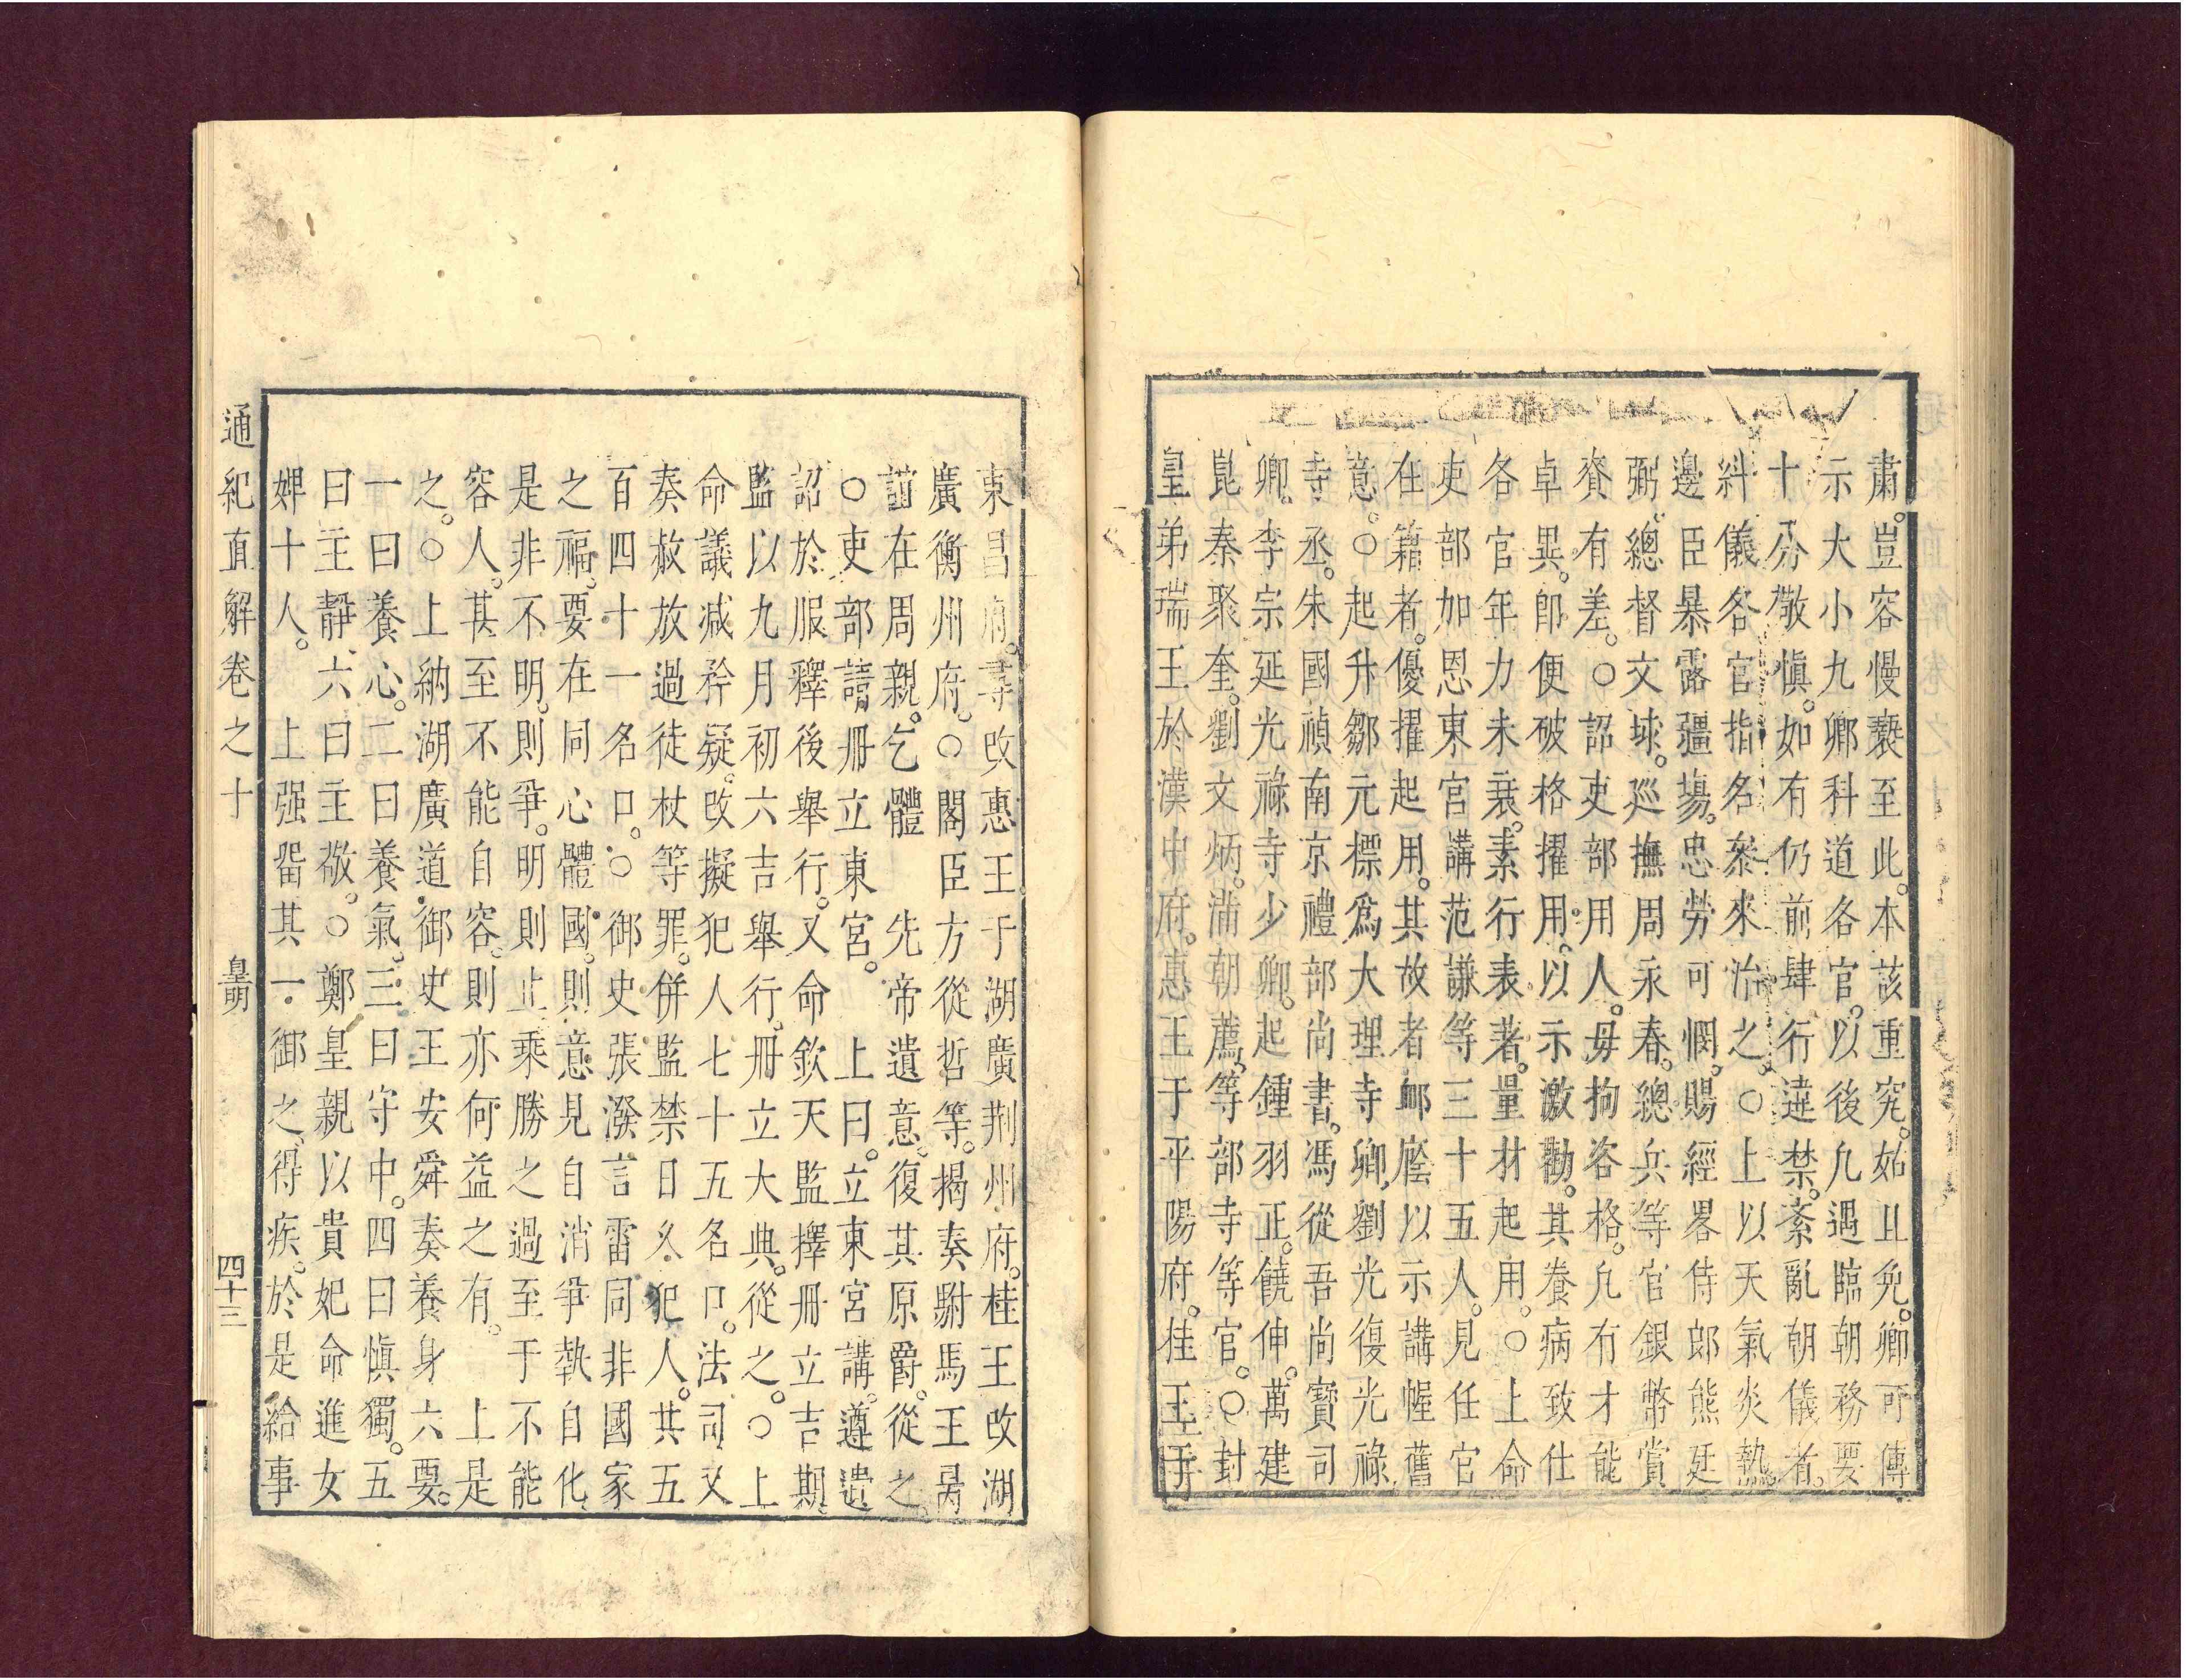 肅。豈容慢褻至此。本該重究。姑且免。卿可傳
示大小九卿科道各官。以後凡遇臨朝務要
十分敬慎。如有仍前肆行違禁。紊亂朝儀者。
糾儀各官指名叅來治之。○上以天氣炎熱。
邊臣暴露疆塲。忠勞可憫。賜經畧侍郎熊廷
弼。總督文球。廵撫周永春。總兵等官銀幣賞
賚有差。○詔吏部用人。毋拘咨格。凡有才能
卓異。卽便破格擢用。以示激勸。其養病致仕
各官年力未衰。素行表著。量材起用。○上命
吏部加恩東宮講范謙等三十五人。見任官
在籍者。優擢起用。其故者邮廕以示講幄舊
意。○起升鄒元標爲大理寺卿。劉光復光祿
寺丞。朱國禎南京禮部尚書。馮從吾尚寶司
卿。李宗延光祿寺少卿。起鍾羽正。饒伸。萬建
崑秦聚奎。劉文炳。滿朝薦。等部寺等官。○封
皇弟瑞王於漢中府。惠王于平陽府。桂王于
東昌府。尋改惠王于湖廣荆州府。桂王改湖
廣衡州府。○閣臣方從哲等。揭奏駙馬王昺
誼在周親。乞體 先帝遺意。復其原爵。從之。
○吏部請冊立東宮。 上曰。立東宮講。遵遺
詔於服釋後舉行。又命欽天監擇冊立吉期。
監以九月初六吉舉行。冊立大典。從之。○上
命議减矜疑。改擬犯人七十五名口。法司又
奏赦放過徒杖等罪。併監禁日久犯人。共五
百四十一名口。○御史張潑言雷同非國家
之福。要在同心體國。則意見自消爭執自化
是非不明。則爭。明則止乘勝之過至于不能
容人。甚至不能自容。則亦何益之有。 上是
之。○上納湖廣道御史王安舜奏養身六要。
一曰養心。二曰養氣。三曰守中。四曰慎獨。五
曰主靜。六曰主敬。○鄭皇親以貴妃命進女
婢十人。 上强畱其一御之。得疾。於是給事
通紀直解卷之十 皇明 四十三